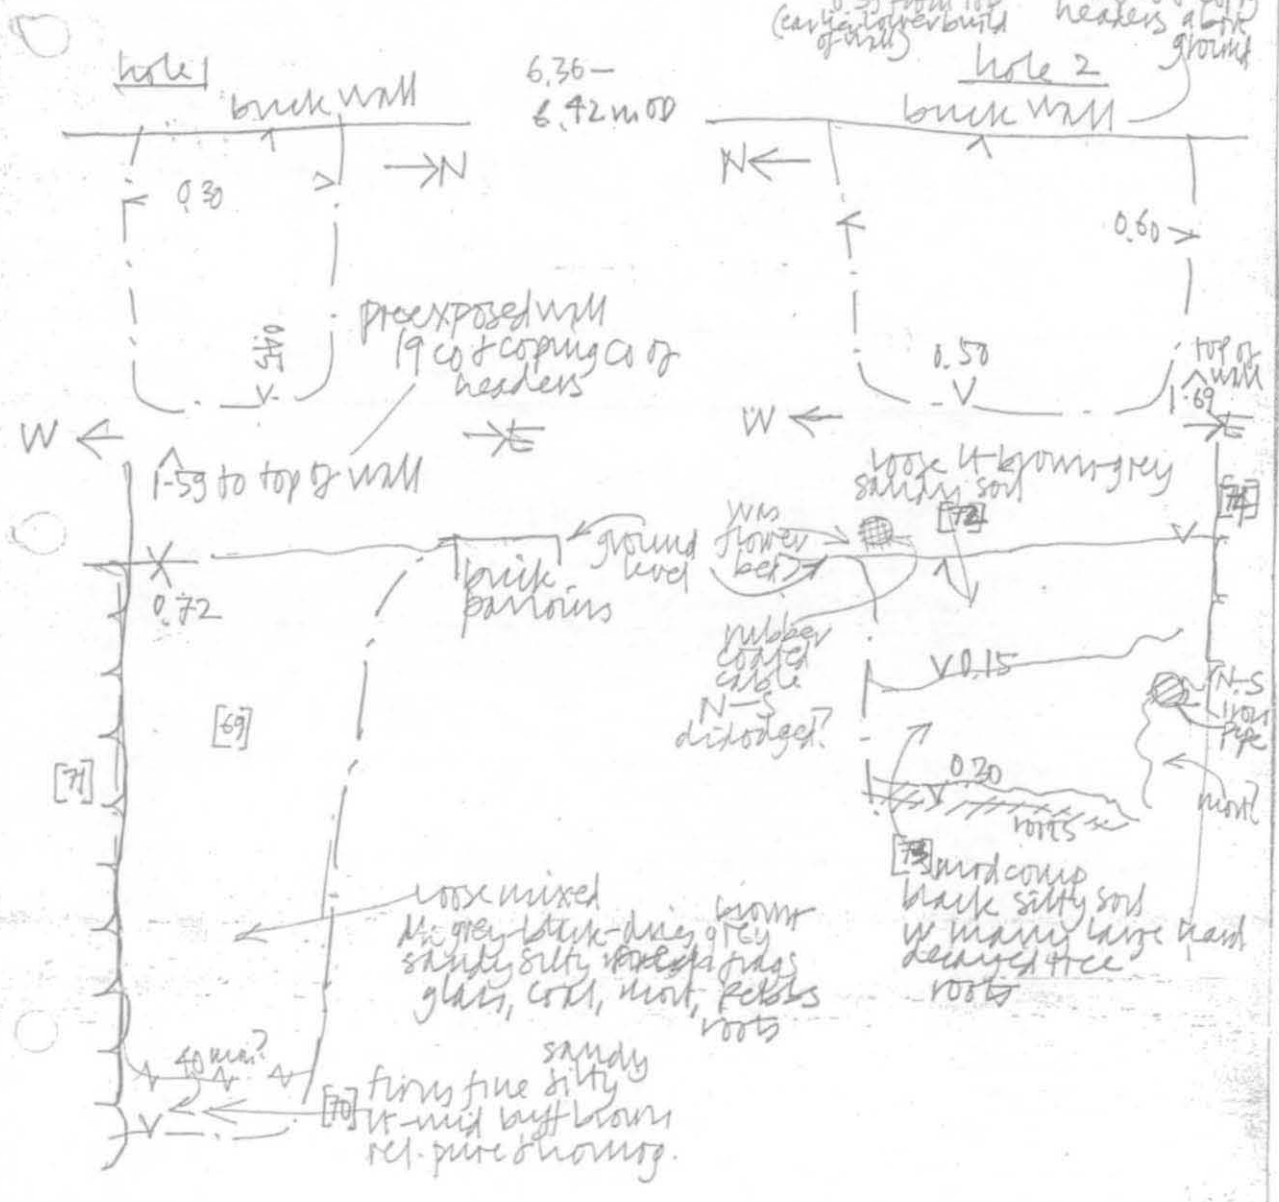 (earlier lower build
of wall)
headers above
ground
hole 1
brick wall
6.36 –
6.42 mOD
hole 2
brick wall
N
N
0.30
0.60
0.45
pre exposed wall
19 co + coping co of
headers
0.50
top of
wall
1.69
W
E
W
E
1.59 to top of wall
loose lt brown-grey
sandy soil
[72]
[74]
was
flower
bed
ground
level
brick
0.72
rubber
coated
cable
N–S
dislodged?
0.15
N-S
iron
pipe
[69]
[71]
0.30
roots
mort?
[73] mod comp
black silty soil
w many large hard
decayed tree
roots
loose mixed
dk grey-black-
brown
grey
sandy silty
frags
glass, coal, mort, pebbs
roots
40 mm?
sandy
[70] firm fine silty
lt-mid buff brown
rel. pure & homog.